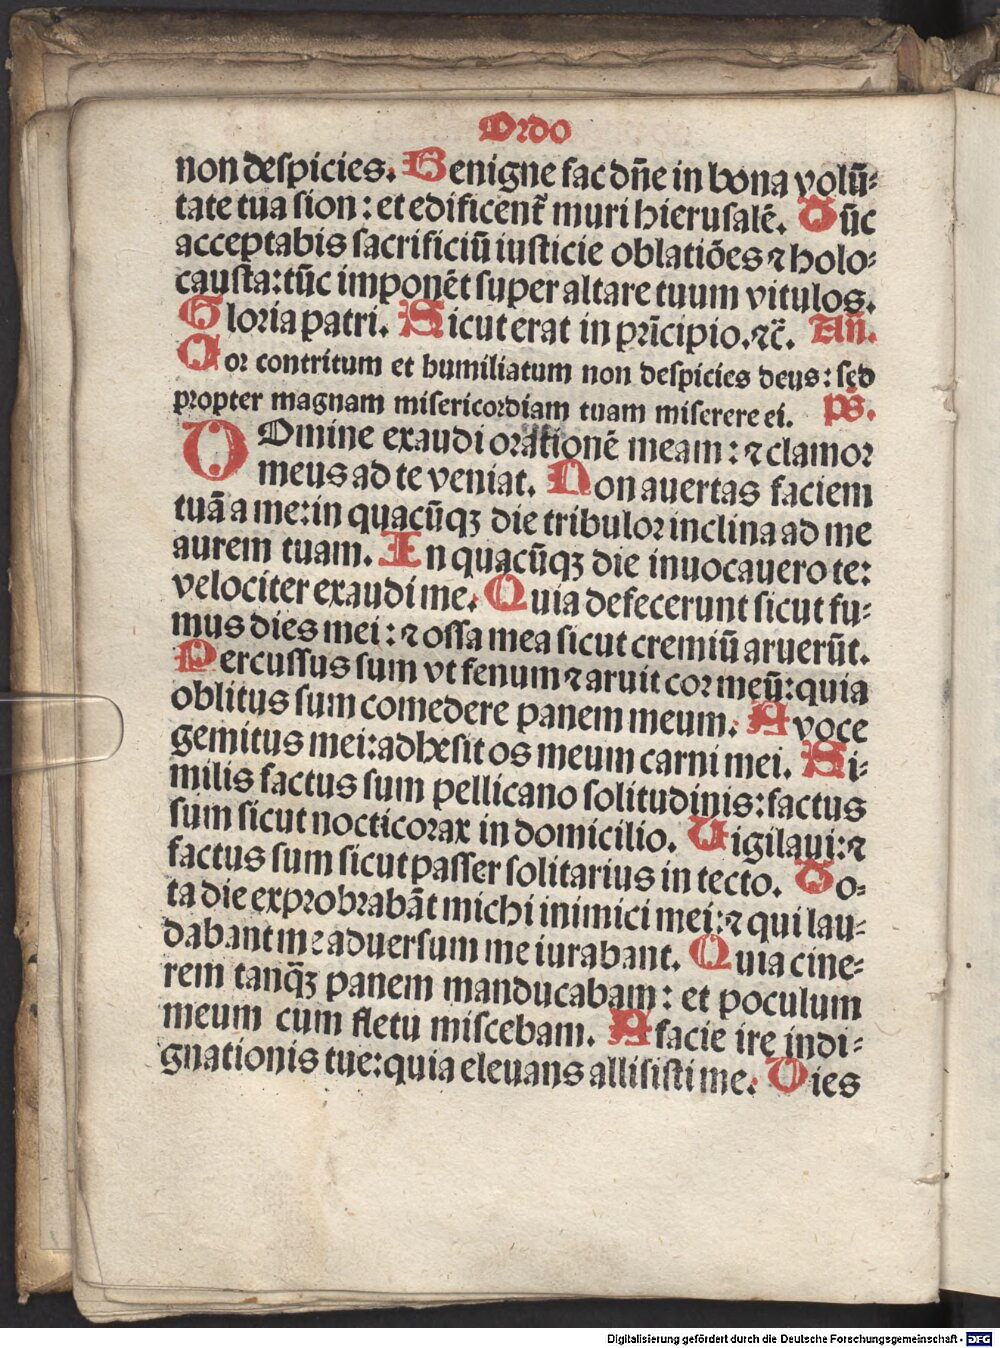 Ordo
non despicies. Benigne fac dn̄e in bona volū⸗
tate tua sion : et edificent᷑ muri hierusalē. Tūc
acceptabis sacrificiū iusticie oblatiōes ⁊ holo⸗
causta: tūc imponēt super altare tuum vitulos.
Gloria patri. Sicut erat in prīcipio. ⁊c̄. Añ.
Cor contritum et humiliatum non despicies deus : sed
propter magnam misericordiam tuam miserere ei. ps.
DOmine exaudi orationē meam : ⁊ clamor
meus ad te veniat. Non auertas faciem
tuā a me: in quacūqꝫ die tribulor inclina ad me
aurem tuam. In quacūqꝫ die inuocauero te:
velociter exaudi me. Quia defecerunt sicut fu⸗
mus dies mei : ⁊ ossa mea sicut cremiū aruerūt.
Percussus sum vt fenum ⁊ aruit cor meū: quia
oblitus sum comedere panem meum. A voce
gemitus mei: adhesit os meum carni mei. Si⸗
milis factus sum pellicano solitudinis: factus
sum sicut nocticorax in domicilio. Uigilaui: ⁊
factus sum sicut passer solitarius in tecto. To⸗
ta die exprobrabāt michi inimici mei: ⁊ qui lau⸗
dabant me aduersum me iurabant. Quia cine⸗
rem tanq̄ꝫ panem manducabam : et poculum
meum cum fletu miscebam. A facie ire indi⸗
gnationis tue: quia eleuans allisisti me. Dies
Digitalisierung gefördert durch die Deutsche Forschungsgemeinschaft - DFG